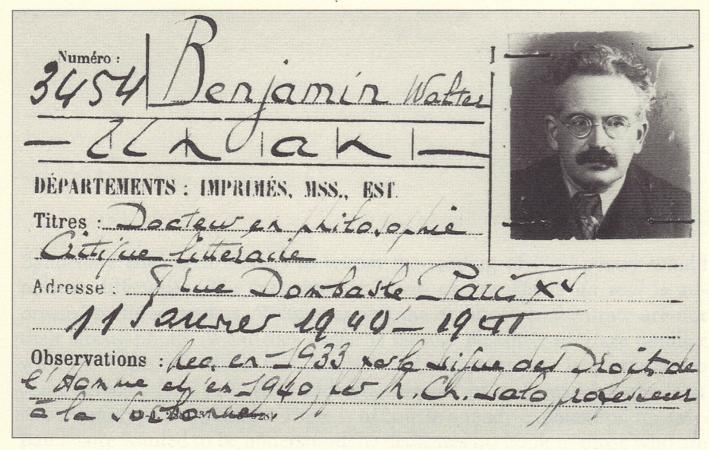 Numéro :
3454 Benjamin Walter
— Un an —
DÉPARTEMENTS : IMPRIMÉS, MSS., EST.
Titres : Docteur en philosophie
Critique litteraire
Adresse : rue Dombasle Paris XV
11 Janvier 1940 - 1941
Observations : Rec. en 1933 par la Ligue des Droits de
l'Homme et en 1940 par M. Ch. Lalo professeur
à la Sorbonne